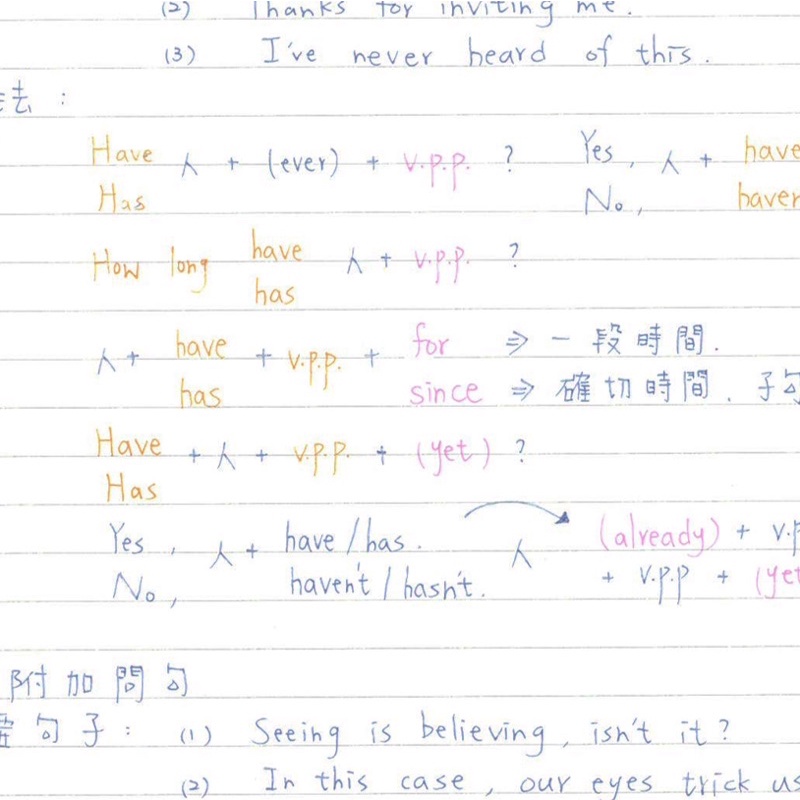 (2) Thanks for inviting me.
(3) I've never heard of this.
法 :
Have 人 + (ever) + v.p.p. ? Yes, 人 + have
Has No,
How long have 人 + v.p.p. ?
has
人 + have + v.p.p. + for ⇒ 一段時間.
has since ⇒ 確切時間. 子句
Have + 人 + v.p.p. + (yet) ?
Has
Yes, 人 + have / has. 人 (already) +
No, haven't / hasn't. + v.p.p +
附加問句
句子 : (1) Seeing is believing, isn't it?
(2) In this case, our eyes trick us